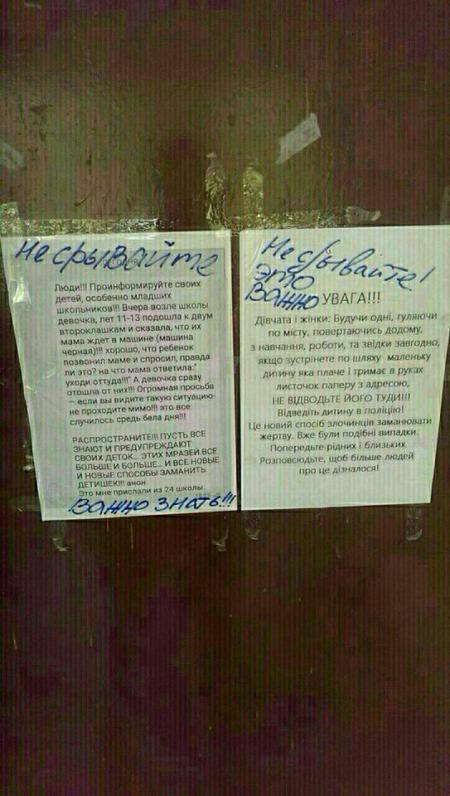 Не срывайте
Люди!!! Проинформируйте своих
детей, особенно младших
школьников!!! Вчера возле школы
девочка, лет 11-13 подошла к двум
второклашкам и сказала, что их
мама ждет в машине (машина
черная)!!! хорошо, что ребенок
позвонил маме и спросил, правда
ли это? на что мама ответила:"
уходи оттуда!!!" А девочка сразу
отошла от них!!! Огромная просьба
— если вы видите такую ситуацию-
не проходите мимо!!! это все
случилось средь бела дня!!!
РАСПРОСТРАНИТЕ!!! ПУСТЬ ВСЕ
ЗНАЮТ И ПРЕДУПРЕЖДАЮТ
СВОИХ ДЕТОК... ЭТИХ МРАЗЕЙ ВСЕ
БОЛЬШЕ И БОЛЬШЕ... И ВСЕ НОВЫЕ
И НОВЫЕ СПОСОБЫ ЗАМАНИТЬ
ДЕТИШЕК!!! анон
Это мне прислали из 24 школы.
Важно знать!!!
Не срывайте!
это
Важно
УВАГА!!!
Дівчата і жінки: Будучи одні, гуляючи
по місту, повертаючись додому,
з навчання, роботи, та звідки завгодно,
якщо зустрінете по шляху маленьку
дитину яка плаче і тримає в руках
листочок паперу з адресою,
НЕ ВІДВОДЬТЕ ЙОГО ТУДИ!!!
Відведіть дитину в поліцію!
Це новий спосіб злочинців заманювати
жертву. Вже були подібні випадки.
Попередьте рідних і близьких.
Розповсюдьте, щоб більше людей
про це дізналося!